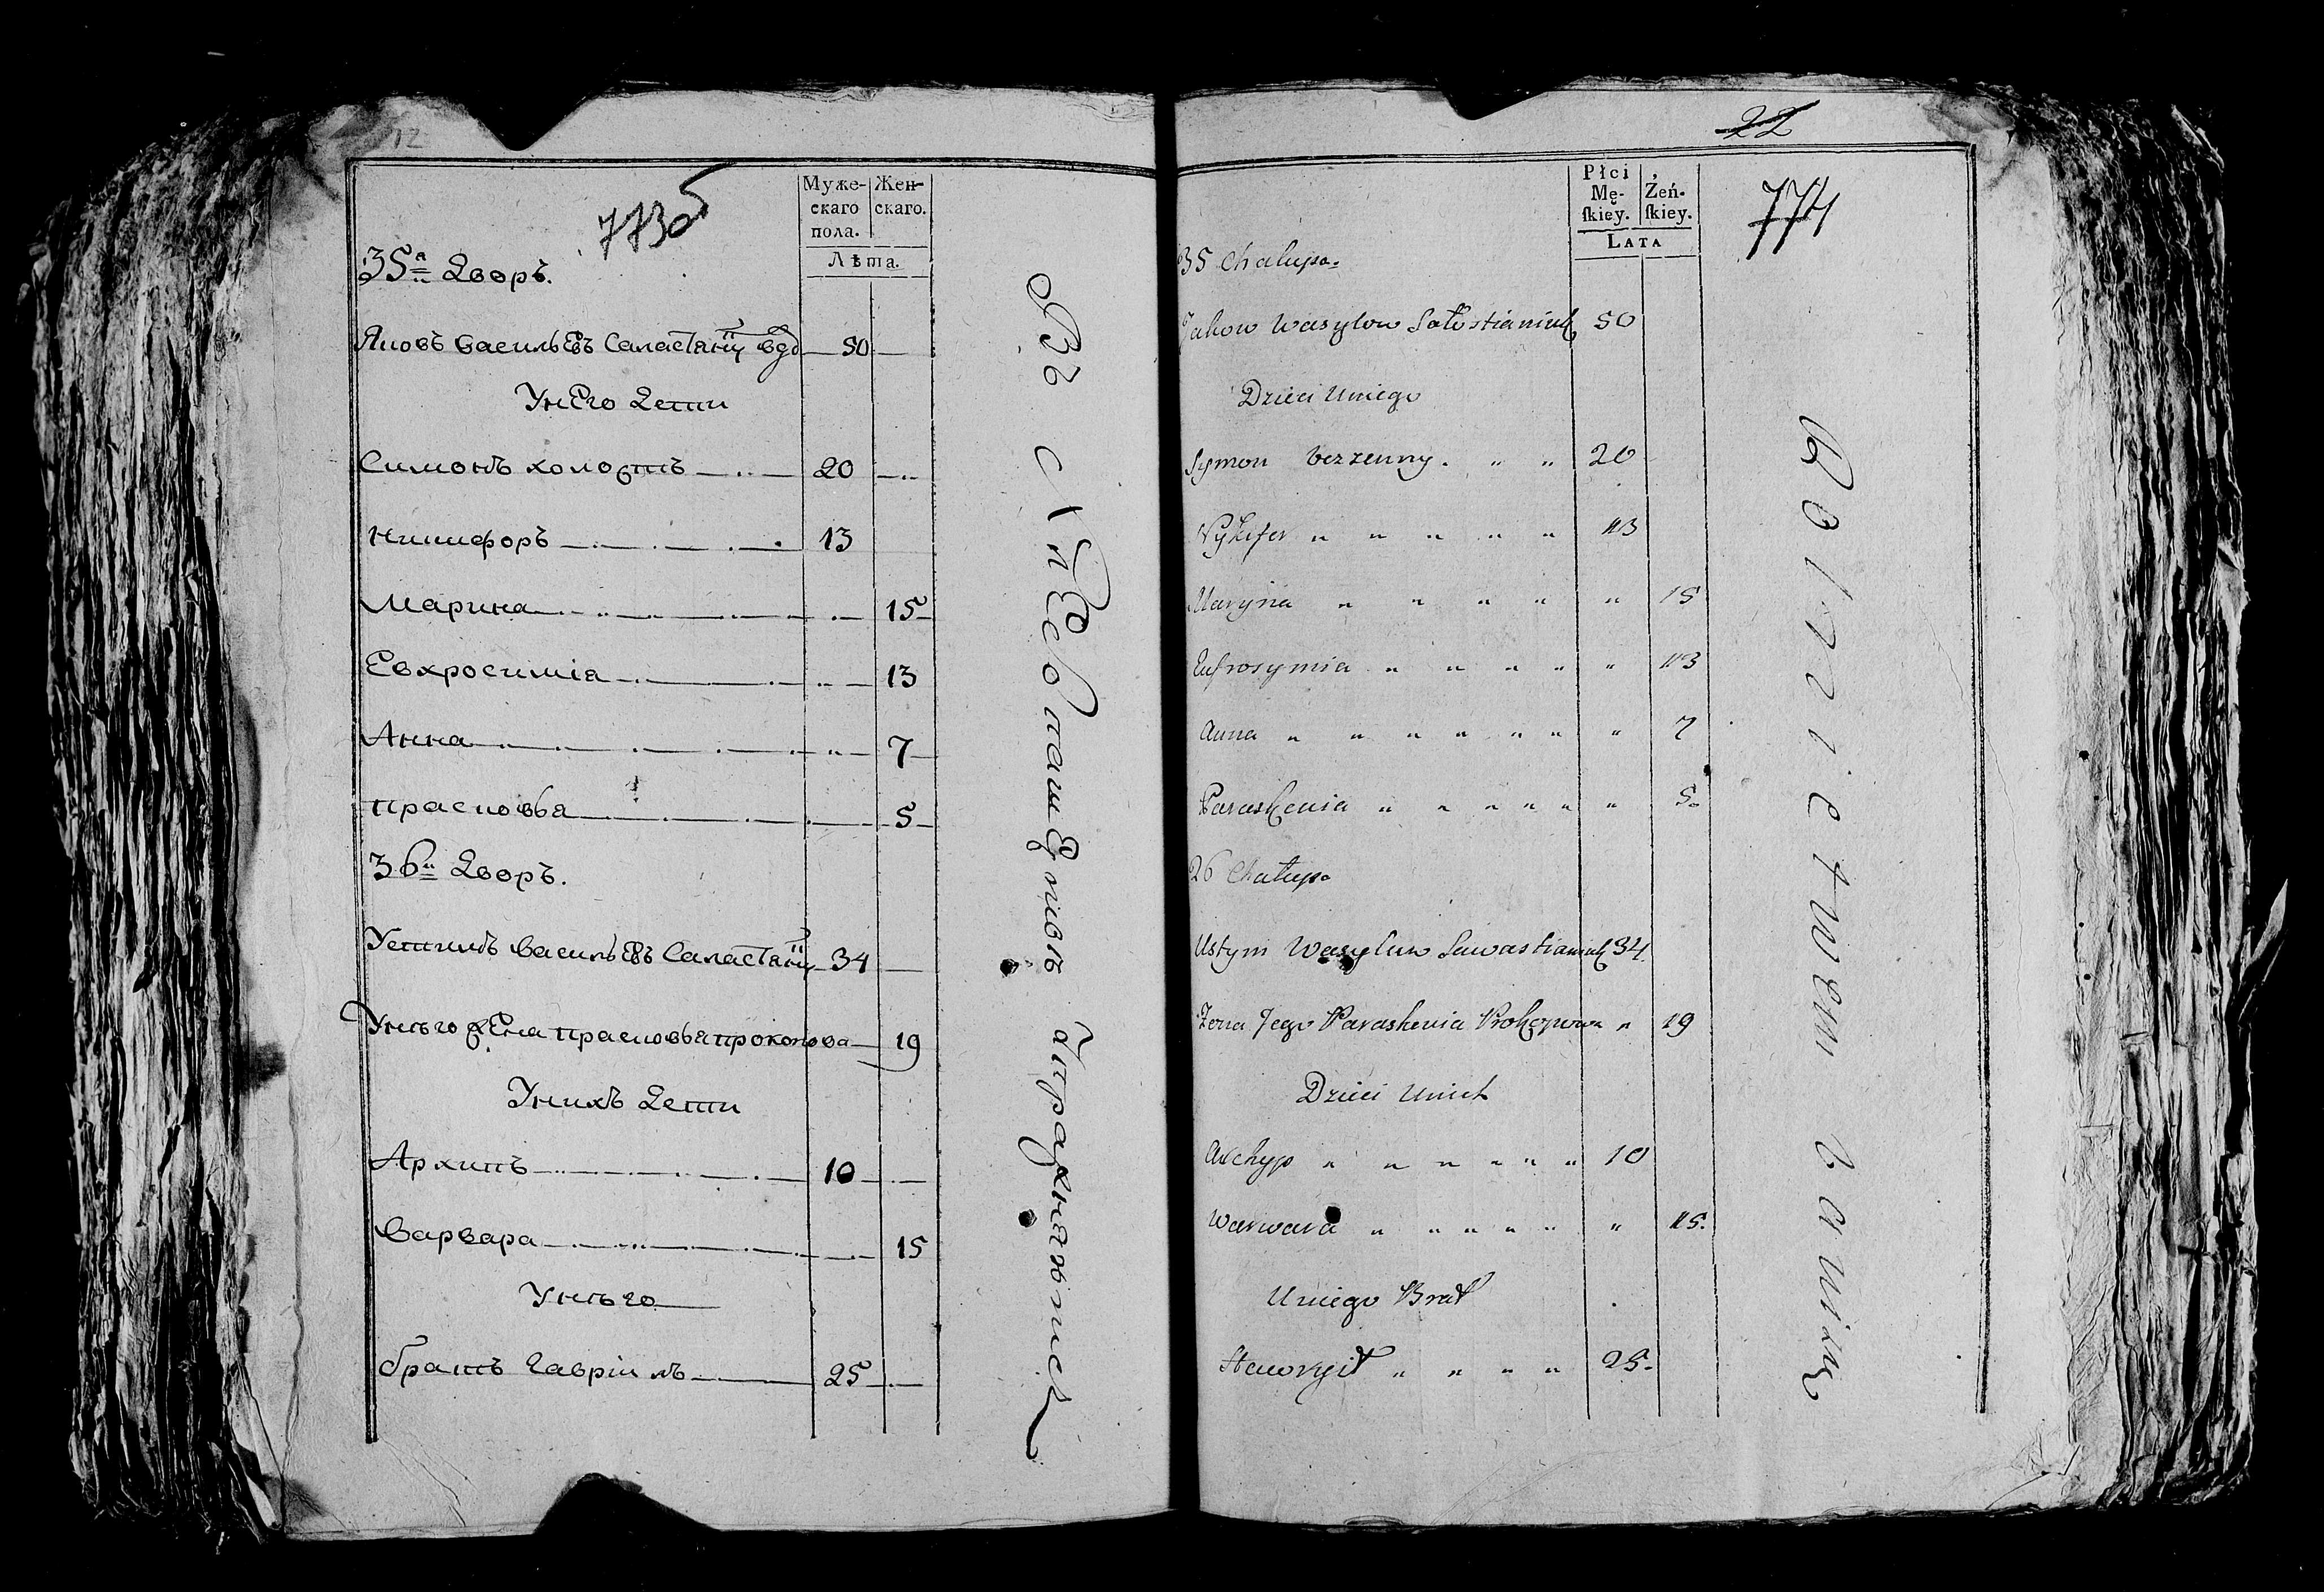 12
773об
Муже-
скаго
пола.
Жен-
скаго.
Лѣта.
35а Дворъ.
Яковъ Васильевъ Саластанюк вдо 50
У Него Дети
Симонъ холостъ 20
Никифоръ 13
Марина 15
Евхросимія 13
Анна 7
Прасковья 5
36й Дворъ.
Устимъ Васильевъ Саластанюк 34
У него жена Прасковья Прокопова 19
У нихъ Дети
Архипъ 10
Варвара 15
У него
братъ Гавріилъ 25
22
774
Płci
Mę-
skiey.
Żeń-
skiey.
LATA
35 Chalupa
Jakow Wasylow Sałostianiuk 50
Dzieci Uniego
Symon bezzenny 20
Nykifer 13
Maryna 15
Eufrosymia 13
Anna 7
Paraskewia 5
26 Chałupa
Ustym Wasyluw Sawastianiuk 34
Zona Jego Paraskewia Prokopowa 19
Dzieci Unich
Archyp 10
Warwara 15
Uniego Brat
Hawryił 25